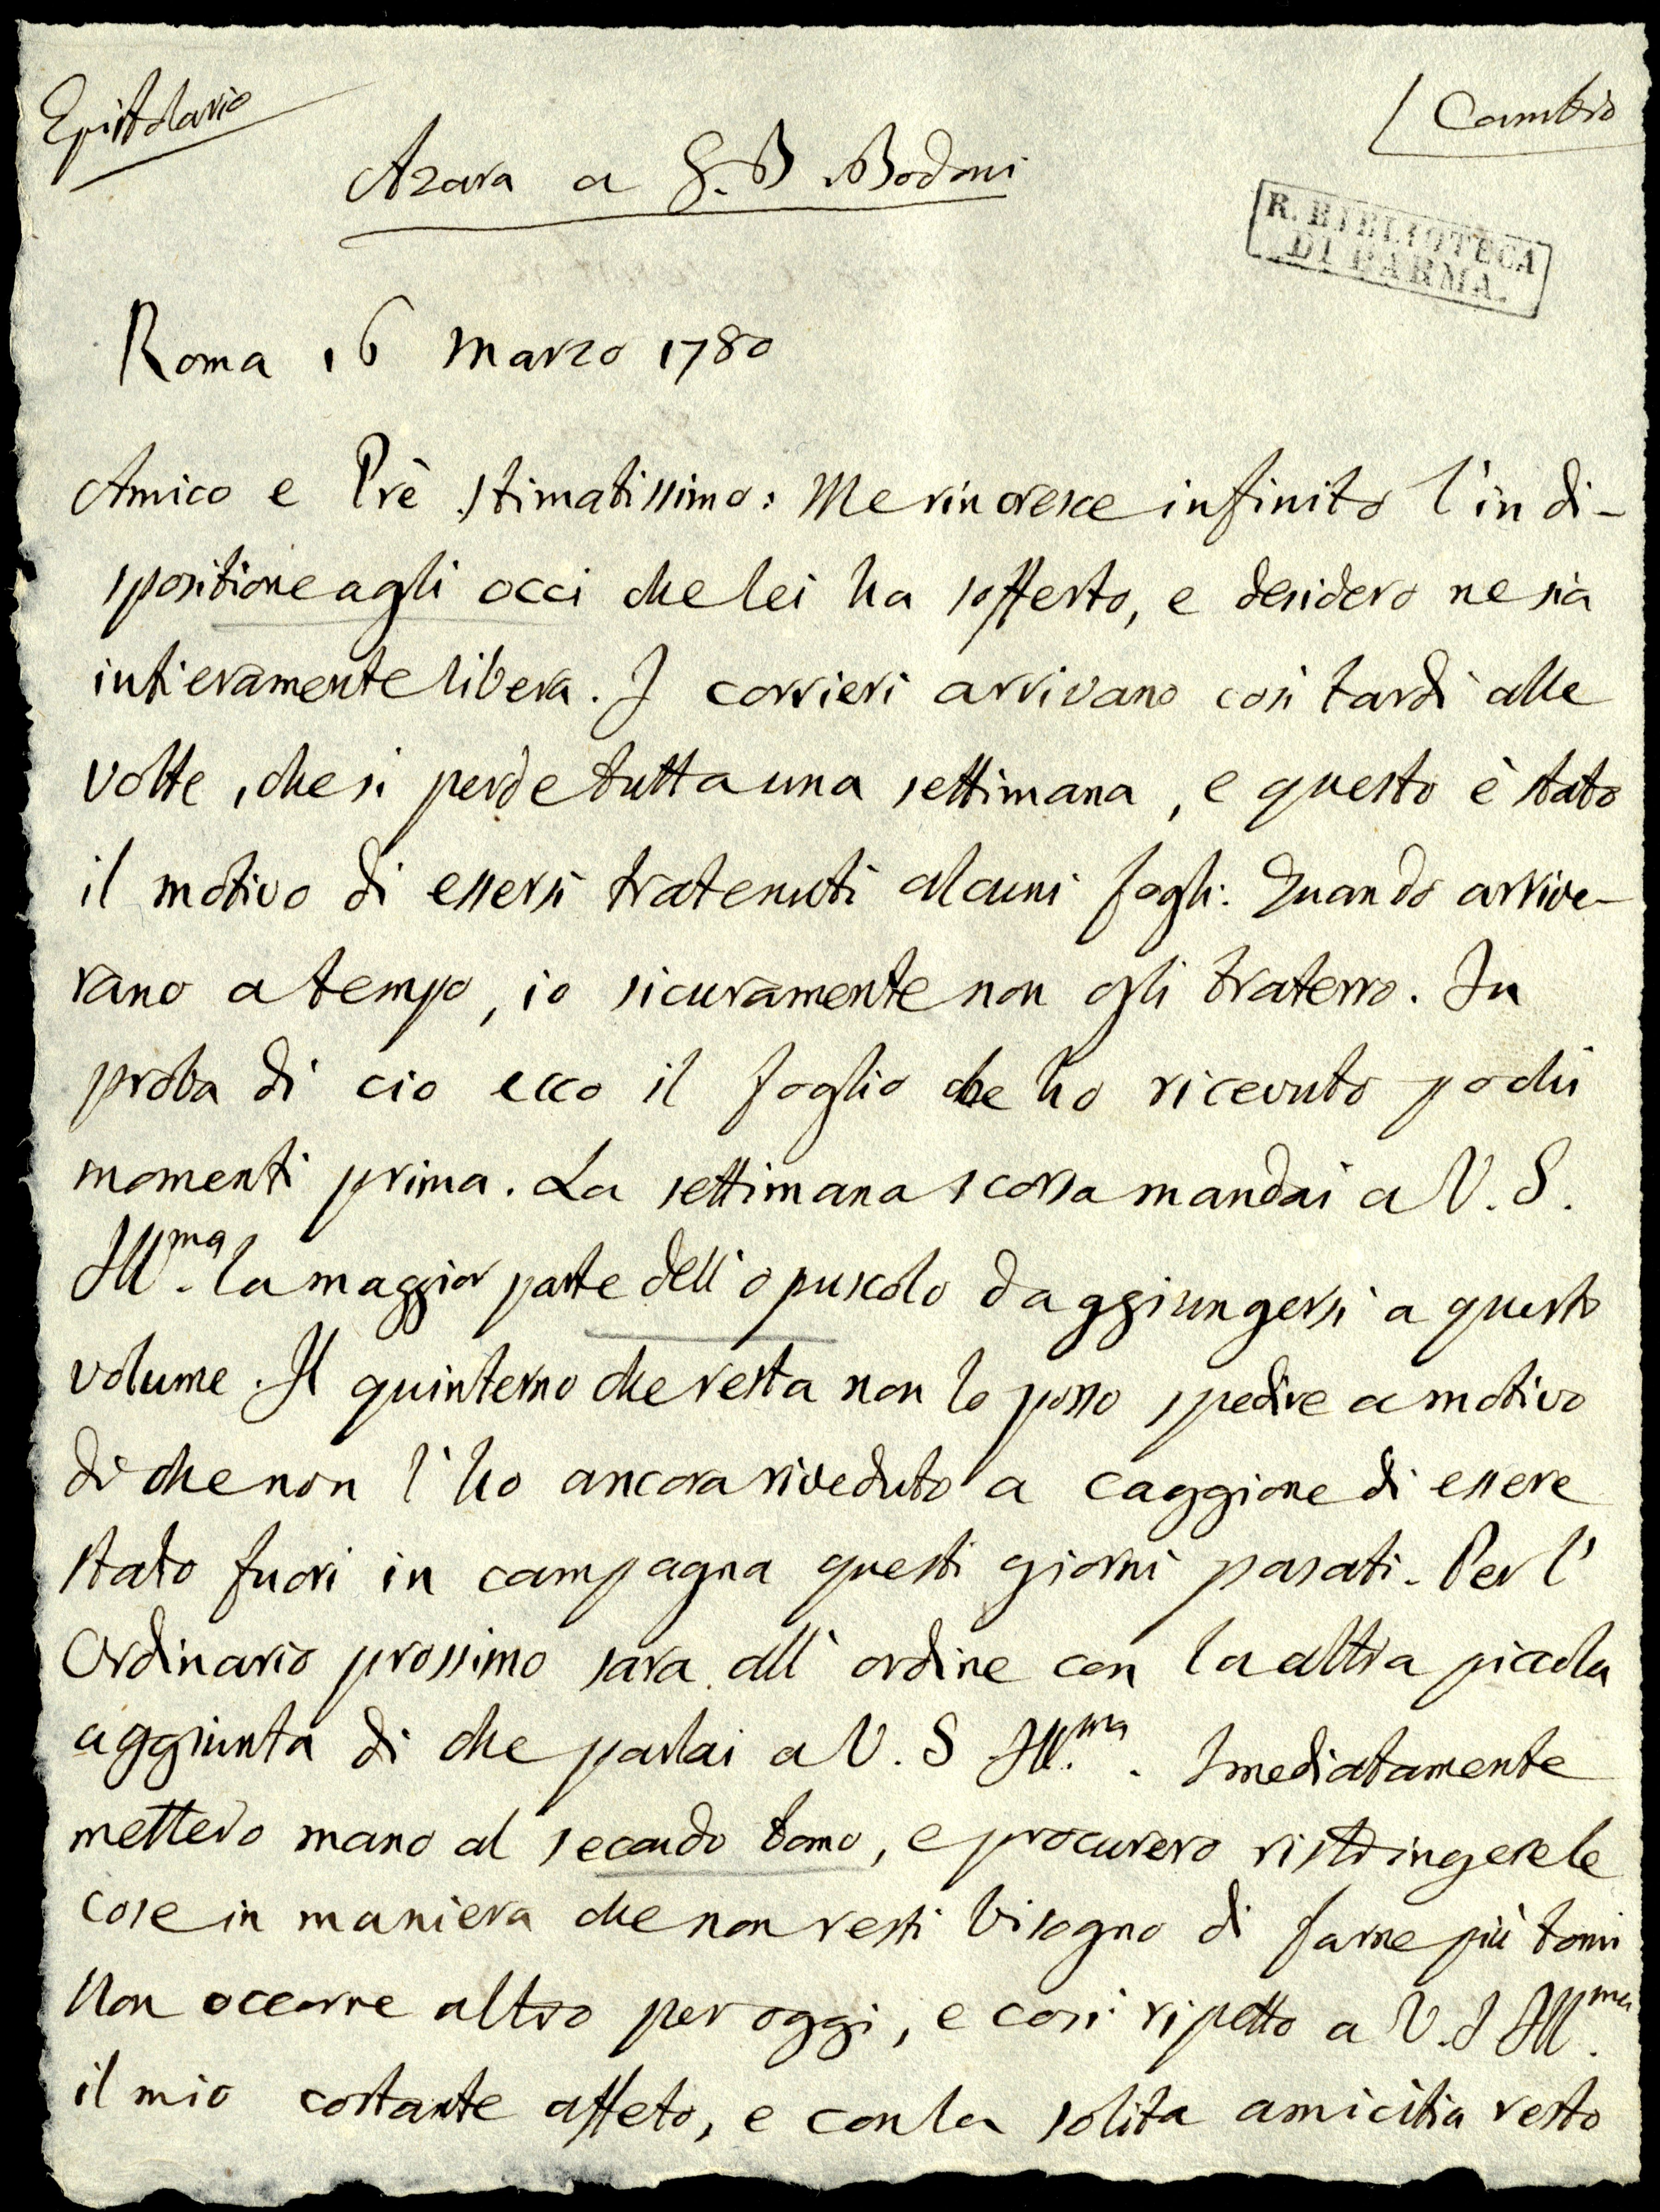 Epistolario
Cambio
Azara a G. B Bodoni
R. BIBLIOTECA
DI PARMA.
Roma 16 Marzo 1780
Amico e Prê stimatissimo: Me rincresce infinito l'indi-
spositione agli occi che lei ha sofferto, e desidero ne sia
intieramente libera. I corrieri arrivano così tardi alle
volte, che si perde tutta una settimana, e questo è stato
il motivo di essersi tratenuti alcuni fogli. Quando arrive-
rano a tempo, io sicuramente non gli traterro. In
proba di cio ecco il foglio che ho ricevuto pochi
momenti prima. La settimana scorsa mandai a V. S.
Ill.ma la maggior parte dell'opuscolo d aggiungersi a questo
volume. Il quinterno che resta non lo posso spedire a motivo
di che non l'ho ancora riveduto a caggione di essere
stato fuori in campagna questi giorni pasati. Per l'
Ordinario prossimo sara all'ordine con la altra piccola
aggiunta di che parlai a V. S Ill.ma. Imediatamente
mettero mano al secondo tomo, e procurero ristringere le
cose in maniera che non resti bisogno di farne più tomi
Non occorre altro per oggi, e così ripetto a V. S Ill.ma
il mio costante affeto, e con la solita amicitia resto